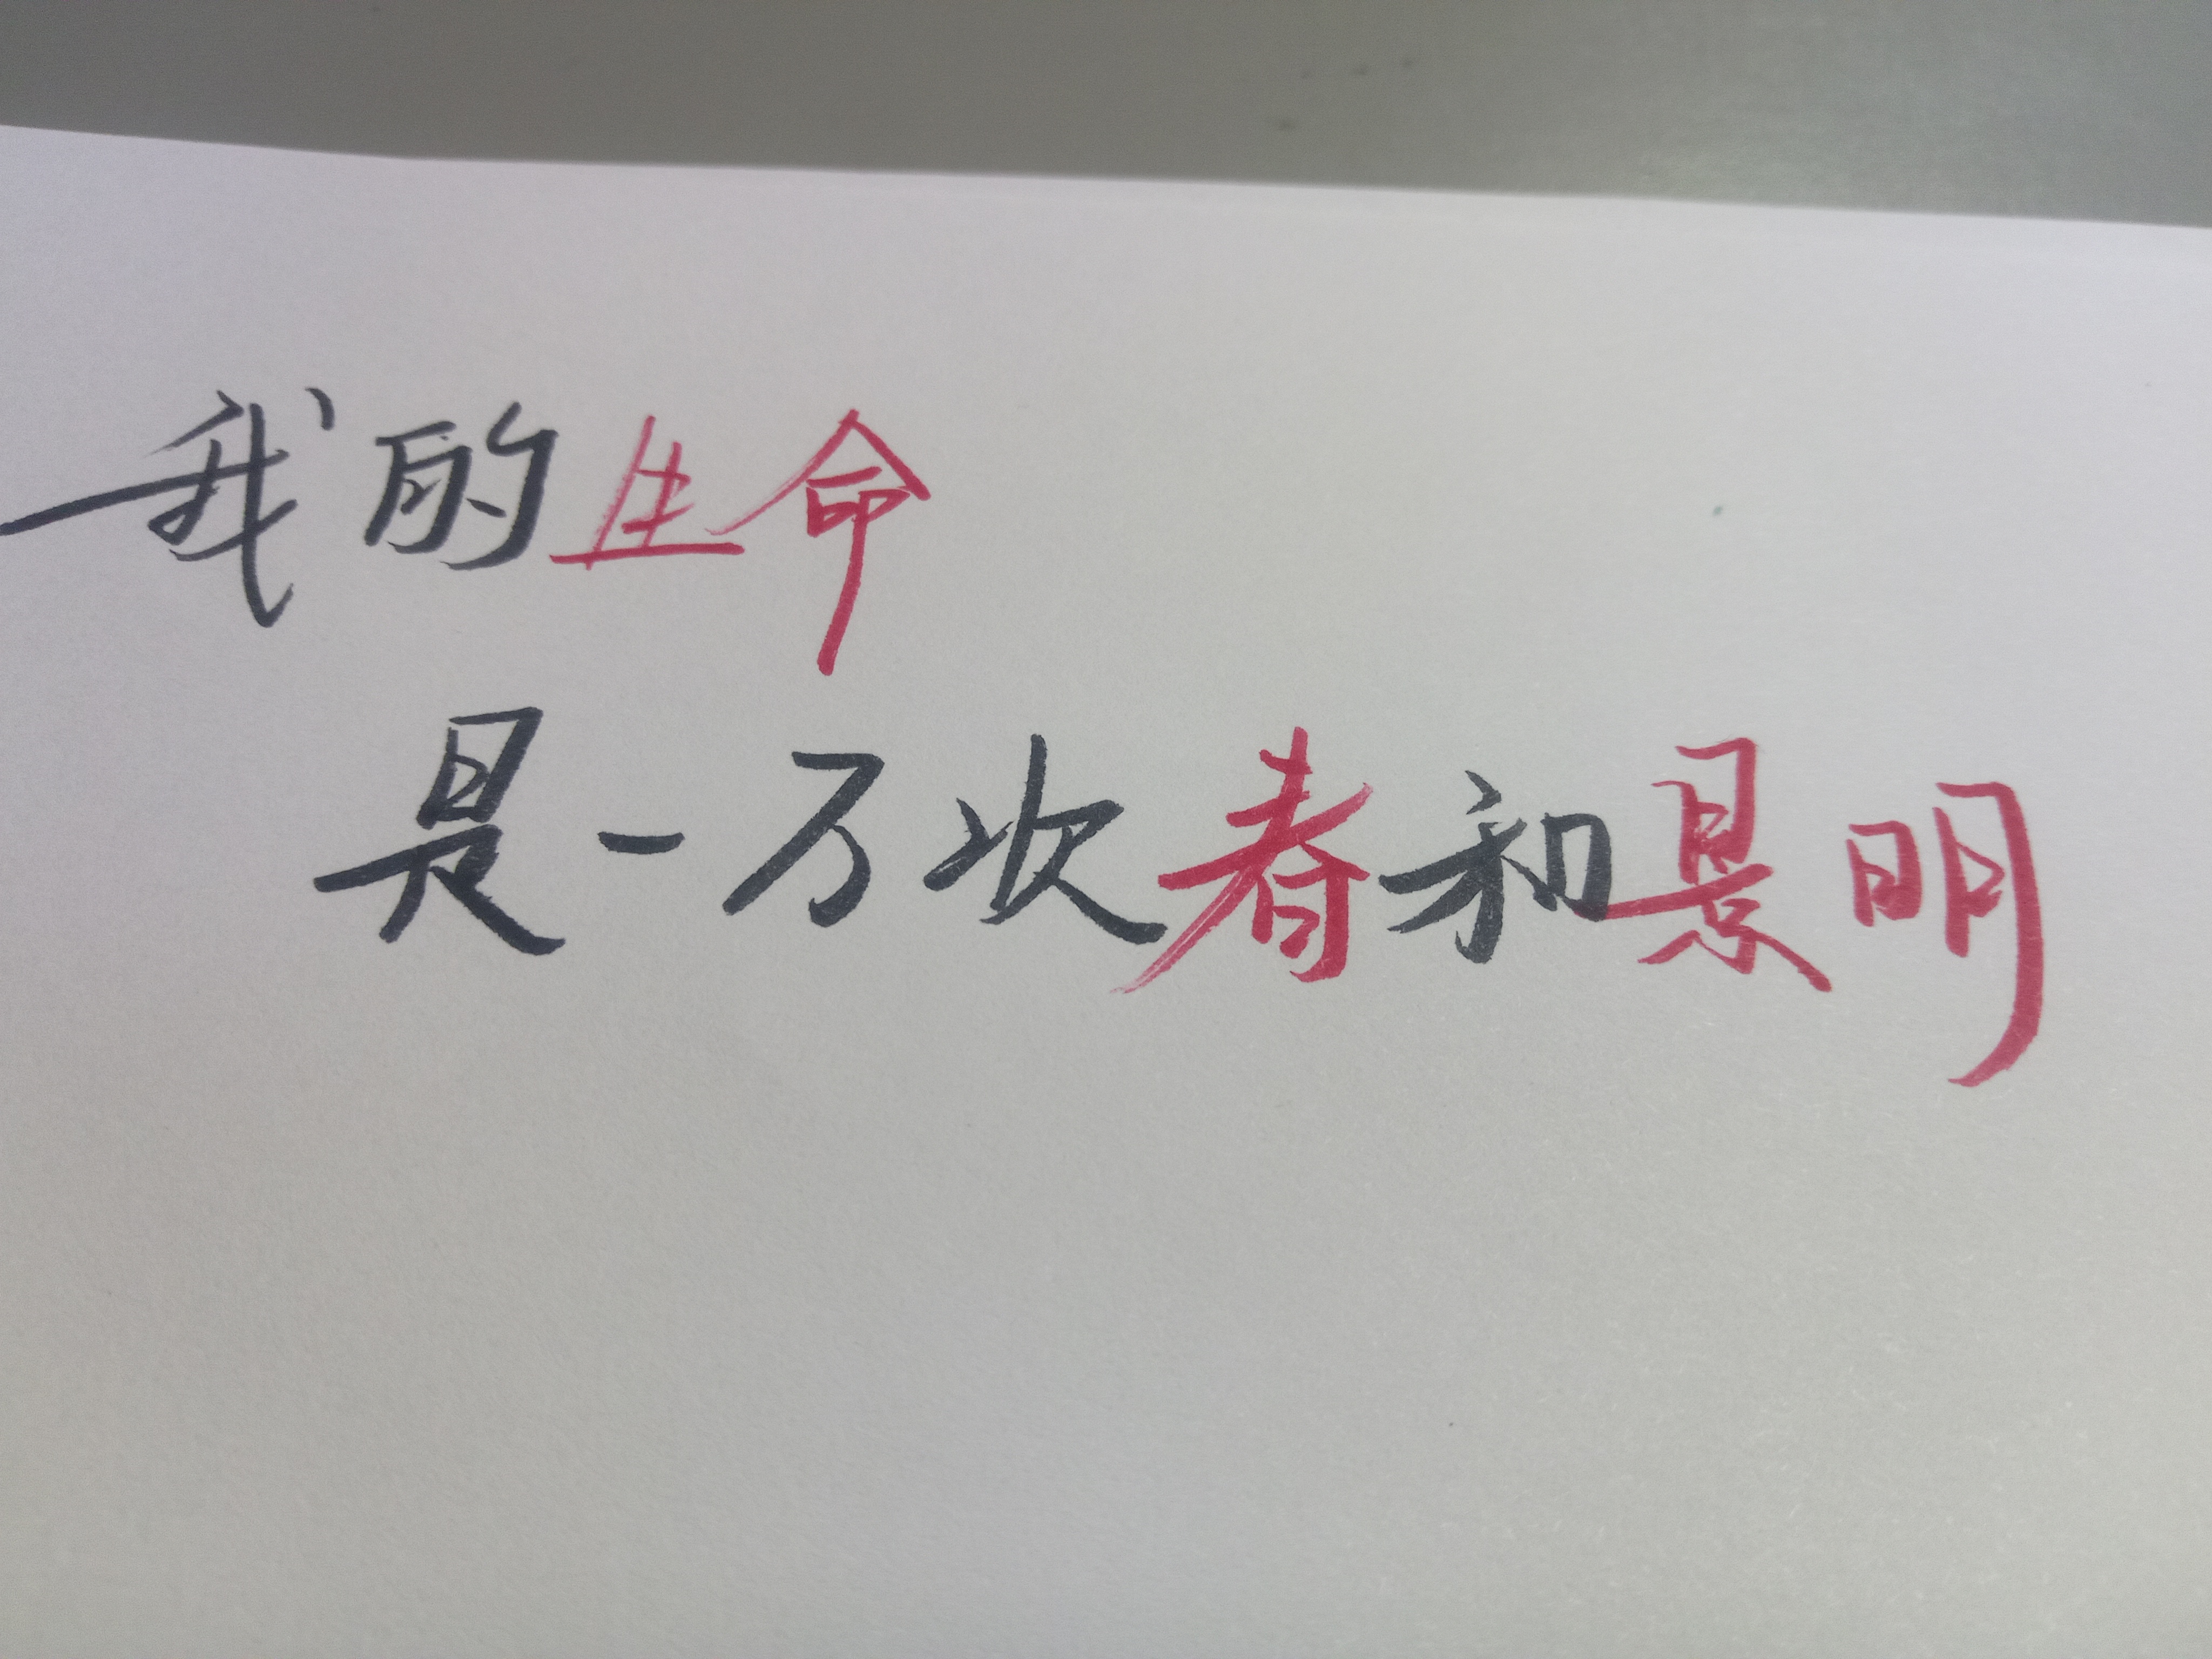 我的生命
是一万次春和景明